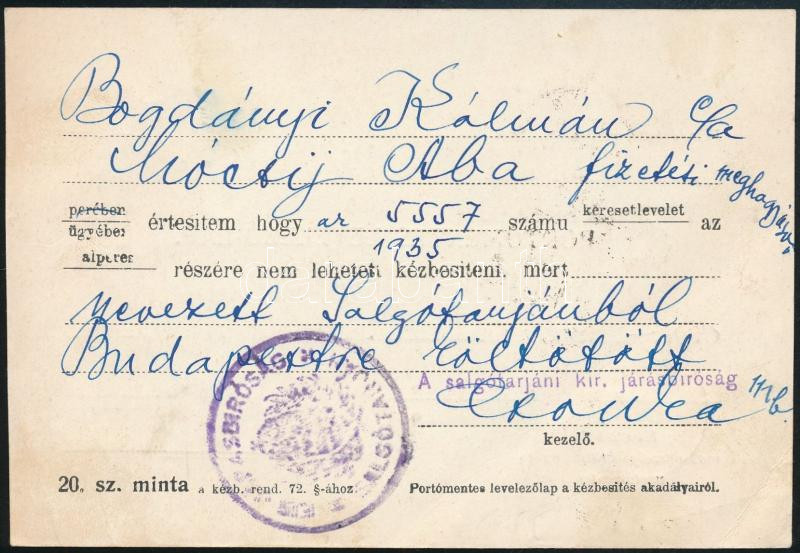 Bogdányi Kálmán c/a
Móczij Aba fizetési meghagyásos
perében
ügyében értesitem hogy az 5557 számu keresetlevelet az
1935
alperes részére nem lehetett kézbesiteni, mert
nevezett Salgótarjánból
Budapestre költözött
A salgótarjáni kir. járásbiróság
mb.
kezelő.
20. sz. minta a kézb. rend. 72. §-ához. Portómentes levelezőlap a kézbesités akadályairól.